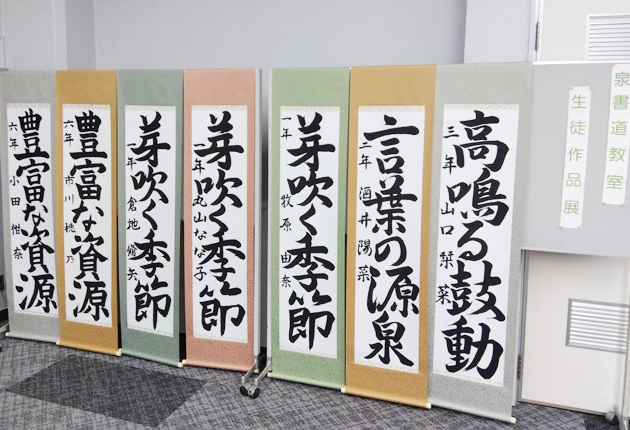 泉書道教室
生徒作品展
高鳴る鼓動
三年 山口 栞菜
言葉の源泉
二年 酒井陽菜
芽吹く季節
一年 牧原 由奈
芽吹く季節
年 丸山なな子
芽吹く季節
年 倉地
豊富な資源
六年 市川 穂乃
豊富な資源
六年 小田 柑奈